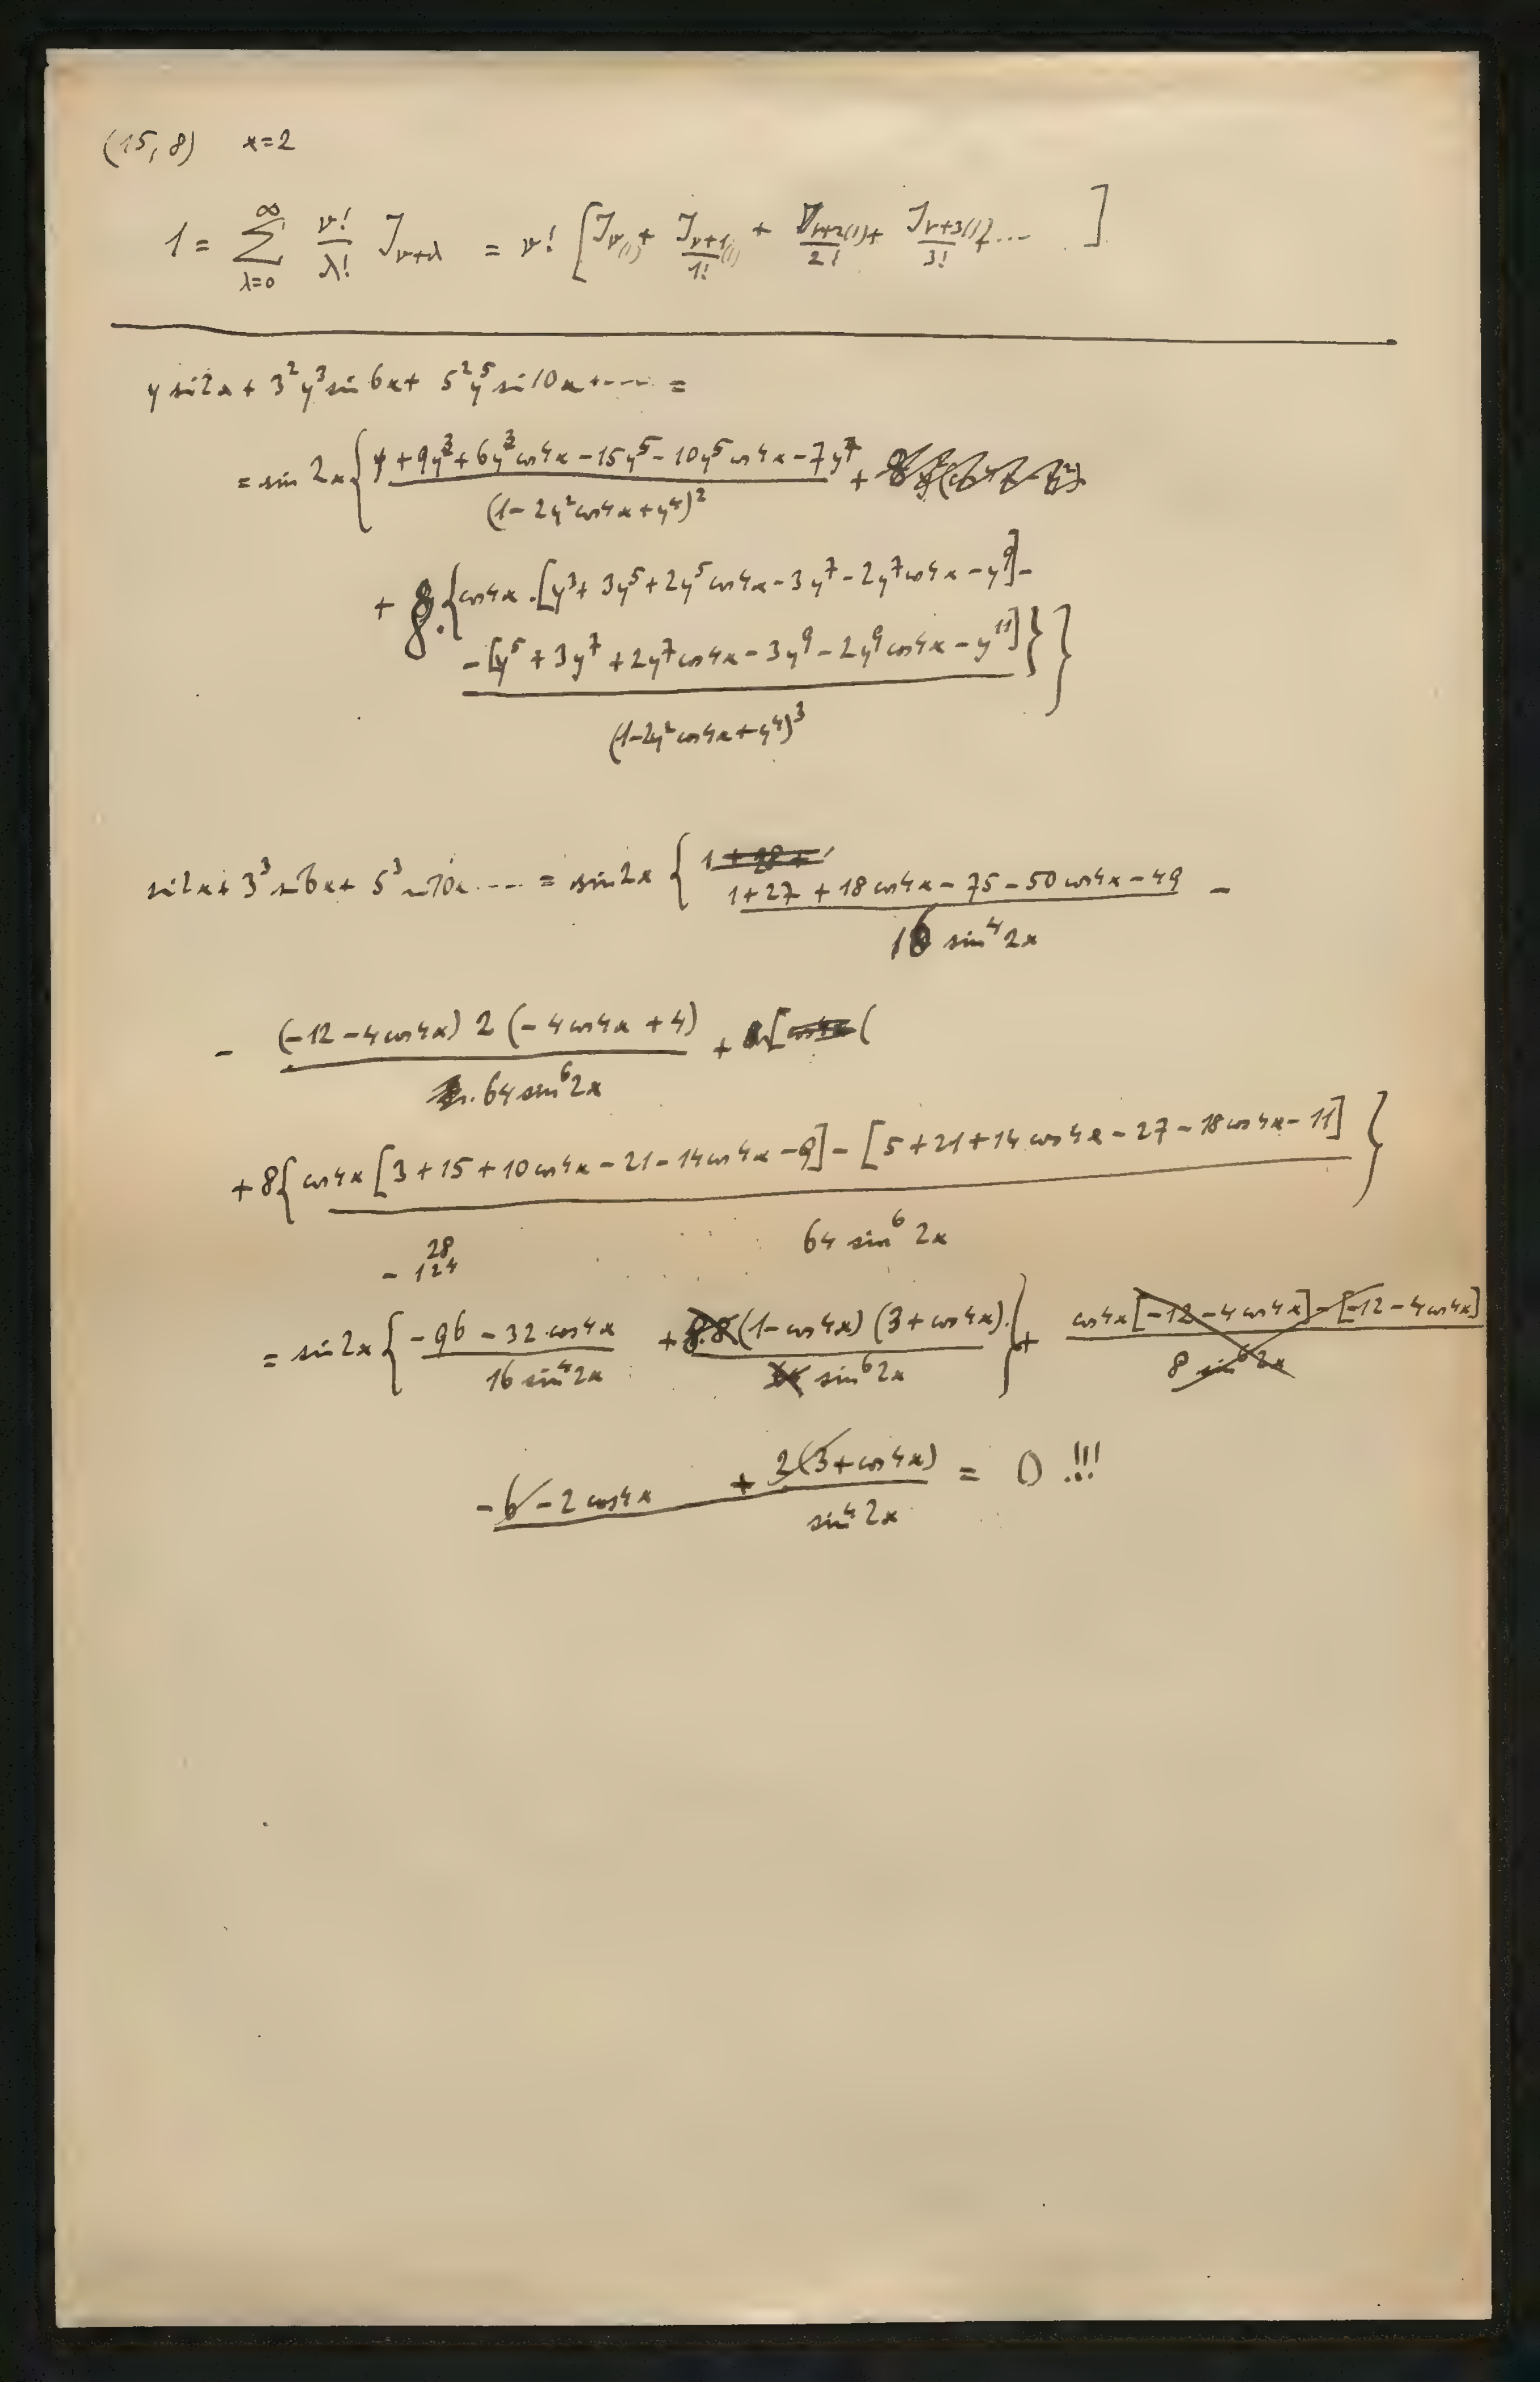 (15, 8) x=2
1 = ∑_{λ=0}^{∞} ν!/λ! J_{ν+λ} = ν! [J_ν(1) + J_{ν+1}(1)/1! + J_{ν+2}(1)/2! + J_{ν+3}(1)/3! + .... ]
y sin 2x + 3² y³ sin 6x + 5² y⁵ sin 10x + ---- =
= sin 2x { (y + 9y³ + 6y³ cos 4x − 15y⁵ − 10y⁵ cos 4x − 7y⁷)/(1 − 2y² cos 4x + y⁴)² +
+ 8·{cos 4x · [y³ + 3y⁵ + 2y⁵ cos 4x − 3y⁷ − 2y⁷ cos 4x − y⁹] −
− [y⁵ + 3y⁷ + 2y⁷ cos 4x − 3y⁹ − 2y⁹ cos 4x − y¹¹]} }
(1 − 2y² cos 4x + y⁴)³
sin 2x + 3³ sin 6x + 5³ sin 10x .... = sin 2x { 1 + 28 +
(1 + 27 + 18 cos 4x − 75 − 50 cos 4x − 49)/(16 sin⁴ 2x) −
− ((−12 − 4 cos 4x) 2 (−4 cos 4x + 4))/(64 sin⁶ 2x) + [cos 4x (
+ 8{ cos 4x [3 + 15 + 10 cos 4x − 21 − 14 cos 4x − 9] − [5 + 21 + 14 cos 4x − 27 − 18 cos 4x − 11] }
64 sin⁶ 2x
28
− 124
= sin 2x { (−96 − 32 cos 4x)/(16 sin⁴ 2x) + (8.8 (1 − cos 4x) (3 + cos 4x))/(64 sin⁶ 2x) } + (cos 4x [−12 − 4 cos 4x] − [−12 − 4 cos 4x])/(8 sin⁶ 2x)
−6 − 2 cos 4x + 2(3 + cos 4x) = 0 !!!
sin⁴ 2x